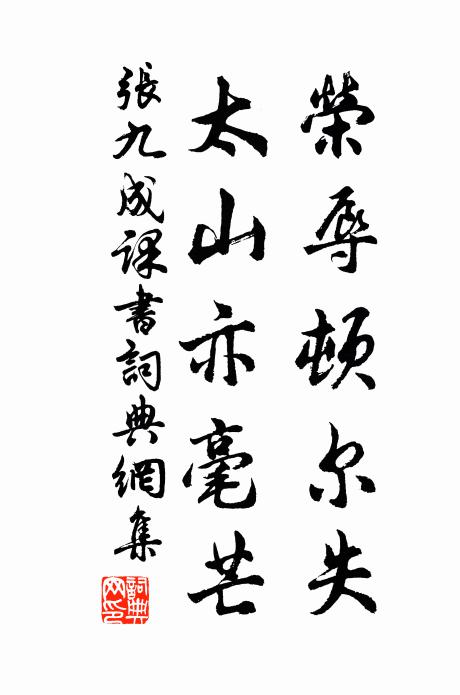 榮辱頓尔失
太山亦毫芒
張九成課書詞典網集
詞典网印